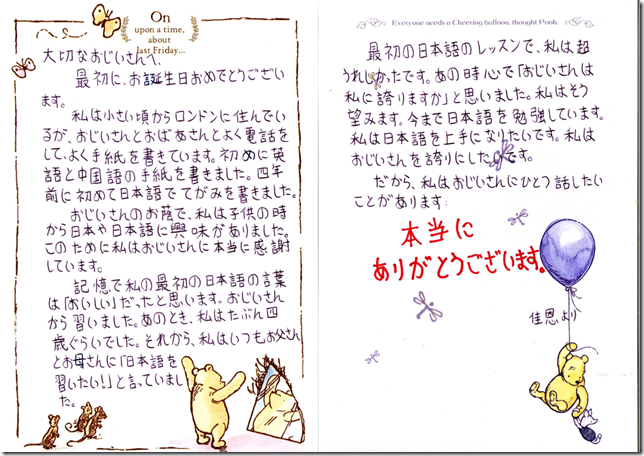 On
upon a time,
about
last Friday...
大切なおじいさんへ、
最初に、お誕生日おめでとうござい
ます。
私は小さい頃からロンドンに住んでい
るが、おじいさんとおばあさんとよく電話を
して、よく手紙を書きています。初めに英
語と中国語の手紙を書きました。四年
前に初めて日本語でてがみを書きました。
おじいさんのお蔭で、私は子供の時
から日本や日本語に興味がありました。
このために私はおじいさんに本当に感謝
しています。
記憶で私の最初の日本語の言葉
は「おいしい」だったと思います。おじいさん
から習いました。あのとき、私はたぶん四
歳ぐらいでした。それから、私はいつもお父さん
とお母さんに「日本語を
習いたい!」と言っていまし
た。
Everyone needs a Cheering balloon, thought Pooh.
最初の日本語のレッスンで、私は超
うれしかったです。あの時心で「おじいさんは
私に誇りますか」と思いました。私はそう
望みます。今まで日本語を勉強しています。
私は日本語を上手になりたいです。私は
おじいさんを誇りにしたいです。
だから、私はおじいさんにひとう話したい
ことがあります:
本当に
ありがとうございます。
佳恩より